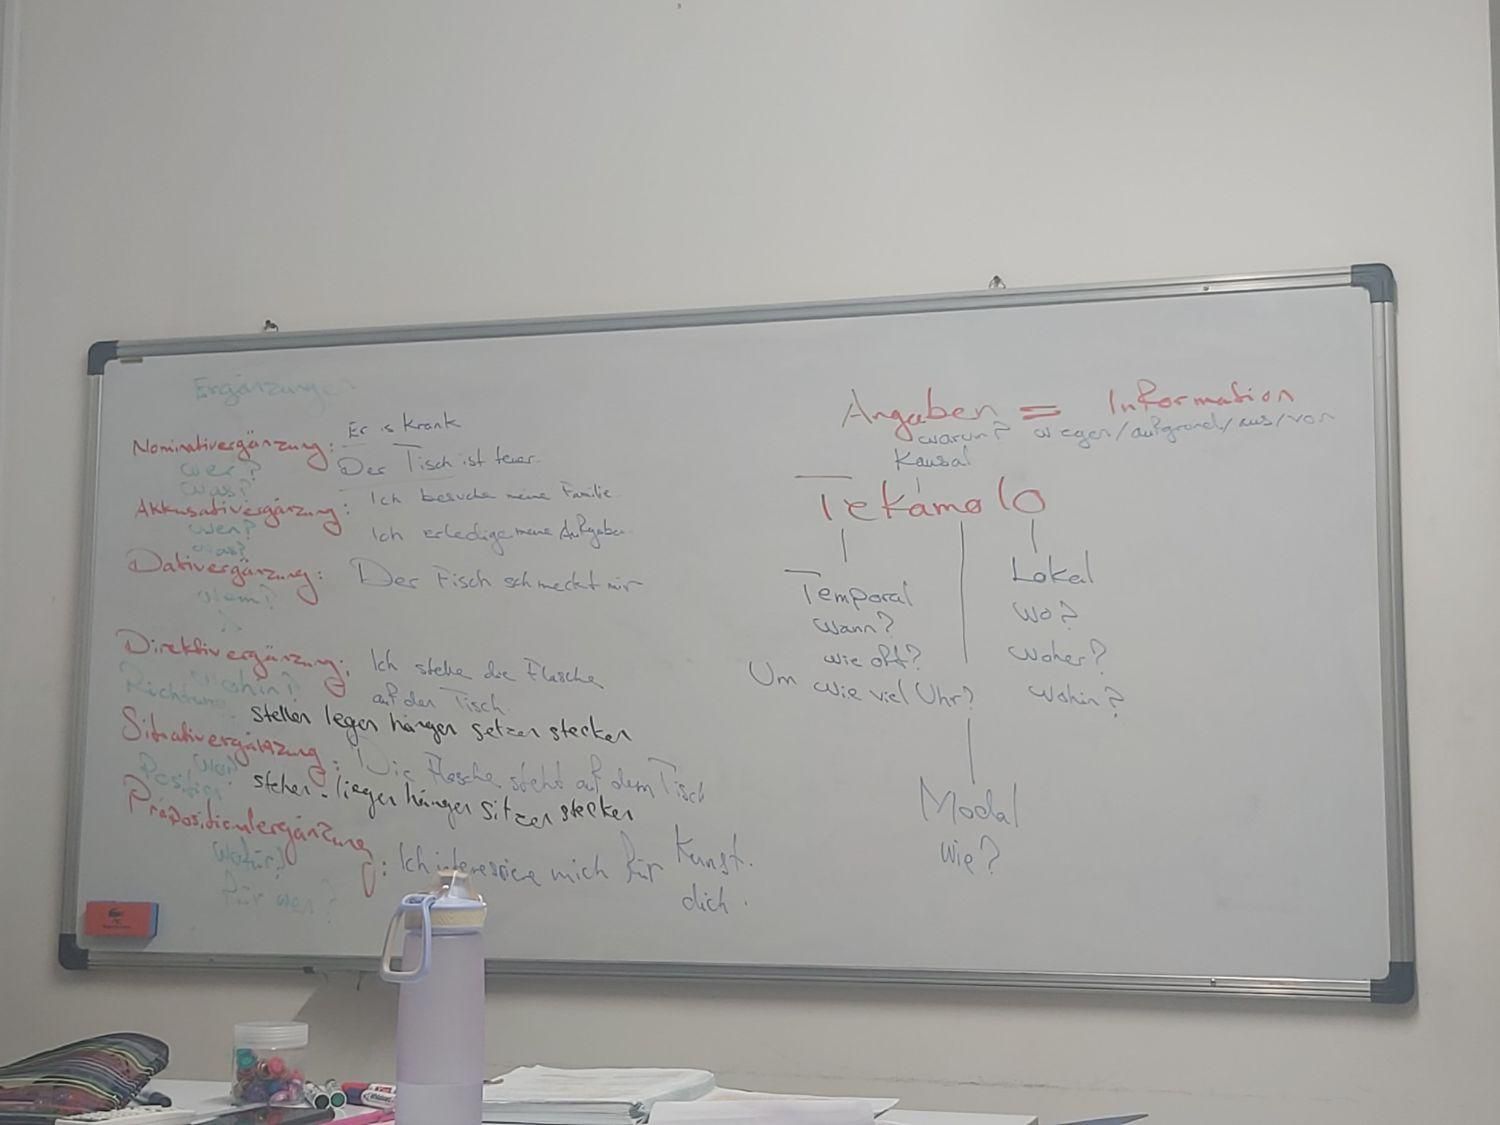 Ergänzungen
Nominativergänzung: Er is krank
wer? Der Tisch ist teuer.
was?
Akkusativergänzung: Ich besuche meine Familie
wen? Ich erledige meine Aufgaben.
was?
Dativergänzung: Der Fisch schmeckt mir
wem?
Direktivergänzung: Ich stelle die Flasche
wohin? auf den Tisch.
Richtung
stellen legen hängen setzen stecken
Situativergänzung: Die Flasche steht auf dem Tisch
wo?
Position stehen liegen hängen sitzen stecken
Präpositionalergänzung: Ich interessiere mich für Kunst.
wofür? dich.
für wen?
Angaben = Information
warum? wegen/aufgrund/aus/von
Kausal
Tekamolo
Temporal
wann?
wie oft?
Um wie viel Uhr?
Lokal
wo?
woher?
wohin?
Modal
wie?